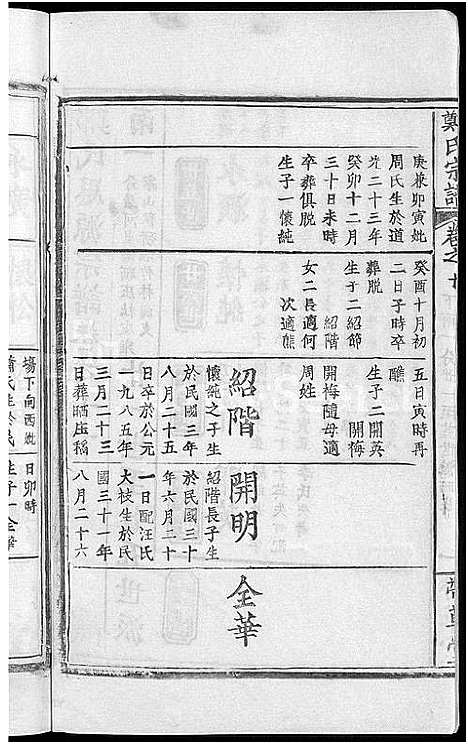 鄭氏宗譜
卷之
庚兼卯寅妣
周氏生於道
光二十三年
癸卯十二月
三十日未時
卒葬俱脱
生子一懷純
癸酉十月初
二日子時卒
葬脱
生子二紹節
紹階
女二長適何
次適熊
五日寅時再
醮
生子二開英
開梅
開梅隨母適
周姓
紹階
懷純之子生
於民國三年
八月二十五
日卒於公元
一九八五年
三月二十三
日葬晒庄稱
開明
紹階長子生
於民國三十
年六月二十
一日配汪氏
大枝生於民
國三十一年
八月二十六
全華
塲下向西妣
日卯時
生子一全華